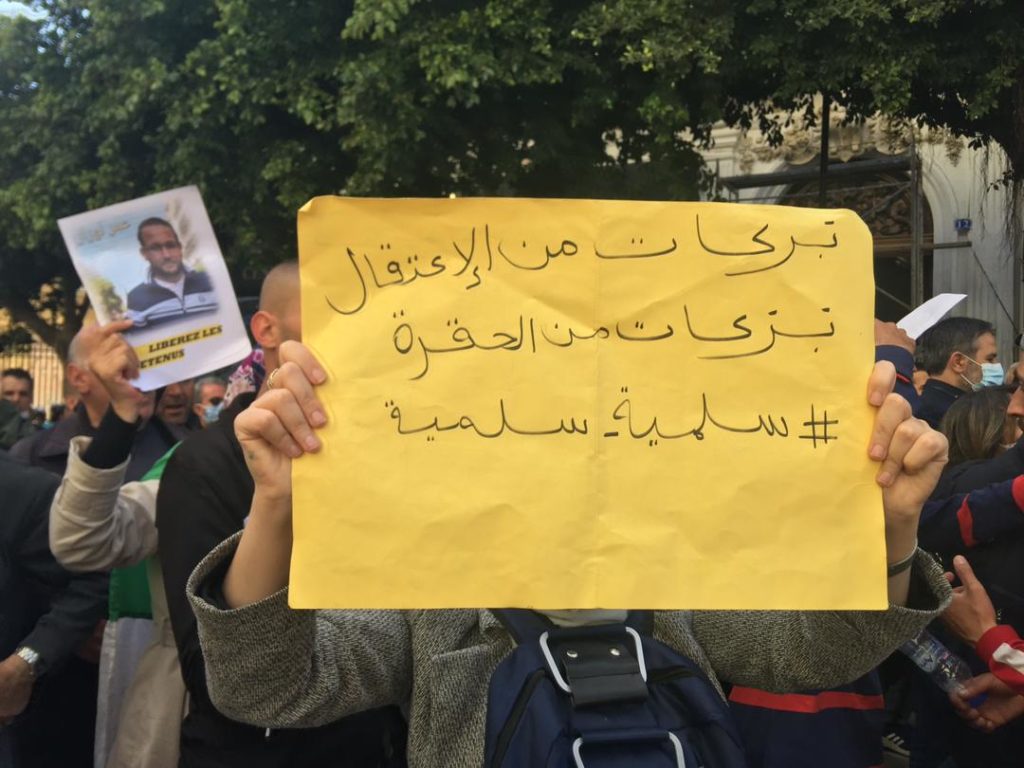 بركات من الإعتقال
بركات من الحقرة
# سلمية_سلمية
LIBEREZ LES
ETENUS